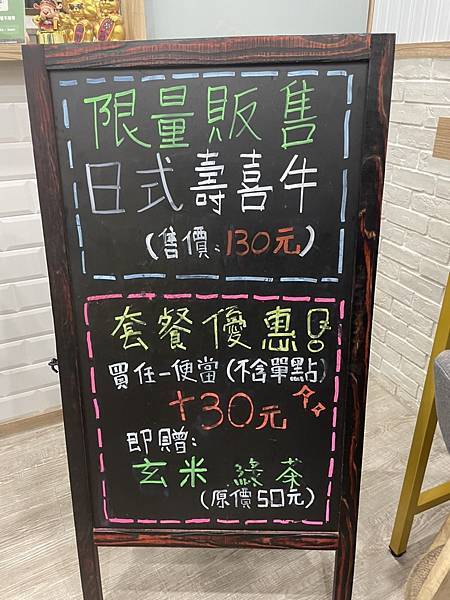 限量販售
日式壽喜牛
(售價:130元)
套餐優惠!
買任一便當(不含單點)
+30元
即贈:
玄米綠茶
(原價50元)